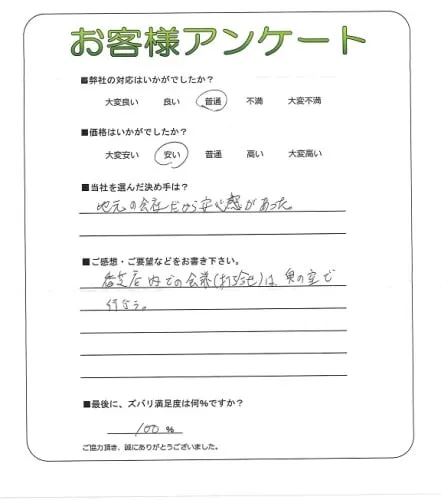 お客様アンケート
■弊社の対応はいかがでしたか?
大変良い 良い 普通 不満 大変不満
■価格はいかがでしたか?
大変安い 安い 普通 高い 大変高い
■当社を選んだ決め手は?
地元の会社だから安心感があった。
■ご感想・ご要望などをお書き下さい。
香芝店内での会議(打合せ)は、奥の室で
行なう。
■最後に、ズバリ満足度は何%ですか?
100 %
ご協力頂き、誠にありがとうございました。